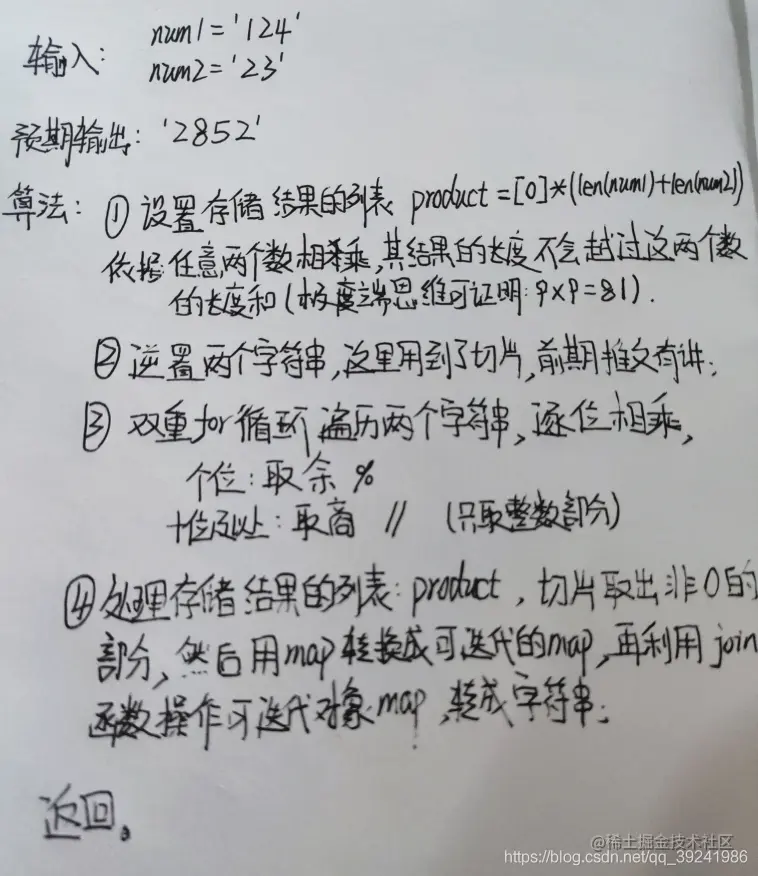 输入: num1='124'
num2='23'
预期输出: '2852'
算法: ① 设置存储结果的列表 product=[0]*(len(num1)+len(num2))
依据:任意两个数相乘,其结果的长度不会越过这两个数
的长度和(极度端思维可证明:9×9=81).
② 逆置两个字符串,这里用到了切片,前期推文有讲;
③ 双重for循环遍历两个字符串,逐位相乘,
个位:取余 %
十位及以上:取商 // (只取整数部分)
④处理存储结果的列表:product,切片取出非0的
部分,然后用map转换成可迭代的map,再利用join
函数操作可迭代对象map,转成字符串;
返回。
@稀土掘金技术社区
https://blog.csdn.net/qq_39241986